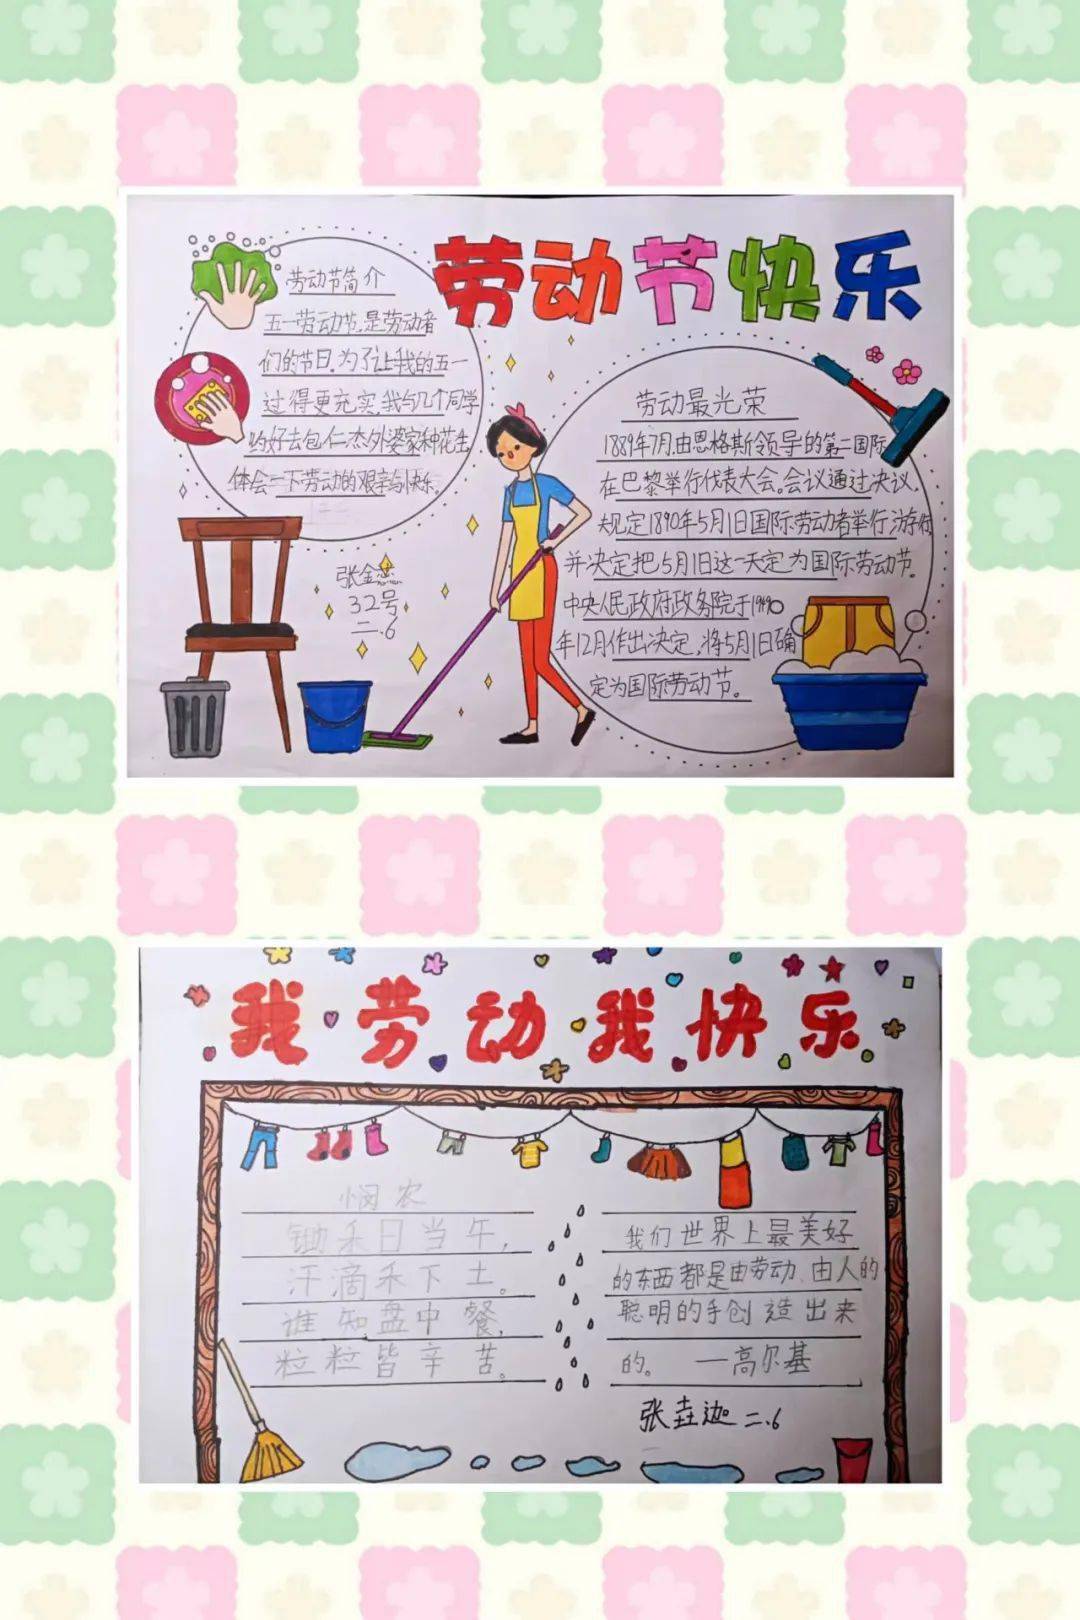 劳动节快乐
劳动节简介
五一劳动节,是劳动者
们的节日。为了让我的五一
过得更充实,我与几个同学
约好去包仁杰外婆家种花生
体会一下劳动的艰辛与快乐。
张金
32号
二.6
劳动最光荣
1889年7月,由恩格斯领导的第二国际
在巴黎举行代表大会。会议通过决议,
规定1890年5月1日国际劳动者举行游行,
并决定把5月1日这一天定为国际劳动节。
中央人民政府政务院于1949
年12月作出决定,将5月1日确
定为国际劳动节。
我劳动我快乐
悯农
锄禾日当午,
汗滴禾下土。
谁知盘中餐,
粒粒皆辛苦。
我们世界上最美好
的东西都是由劳动、由人的
聪明的手创造出来
的。 —高尔基
张垚迦 二.6